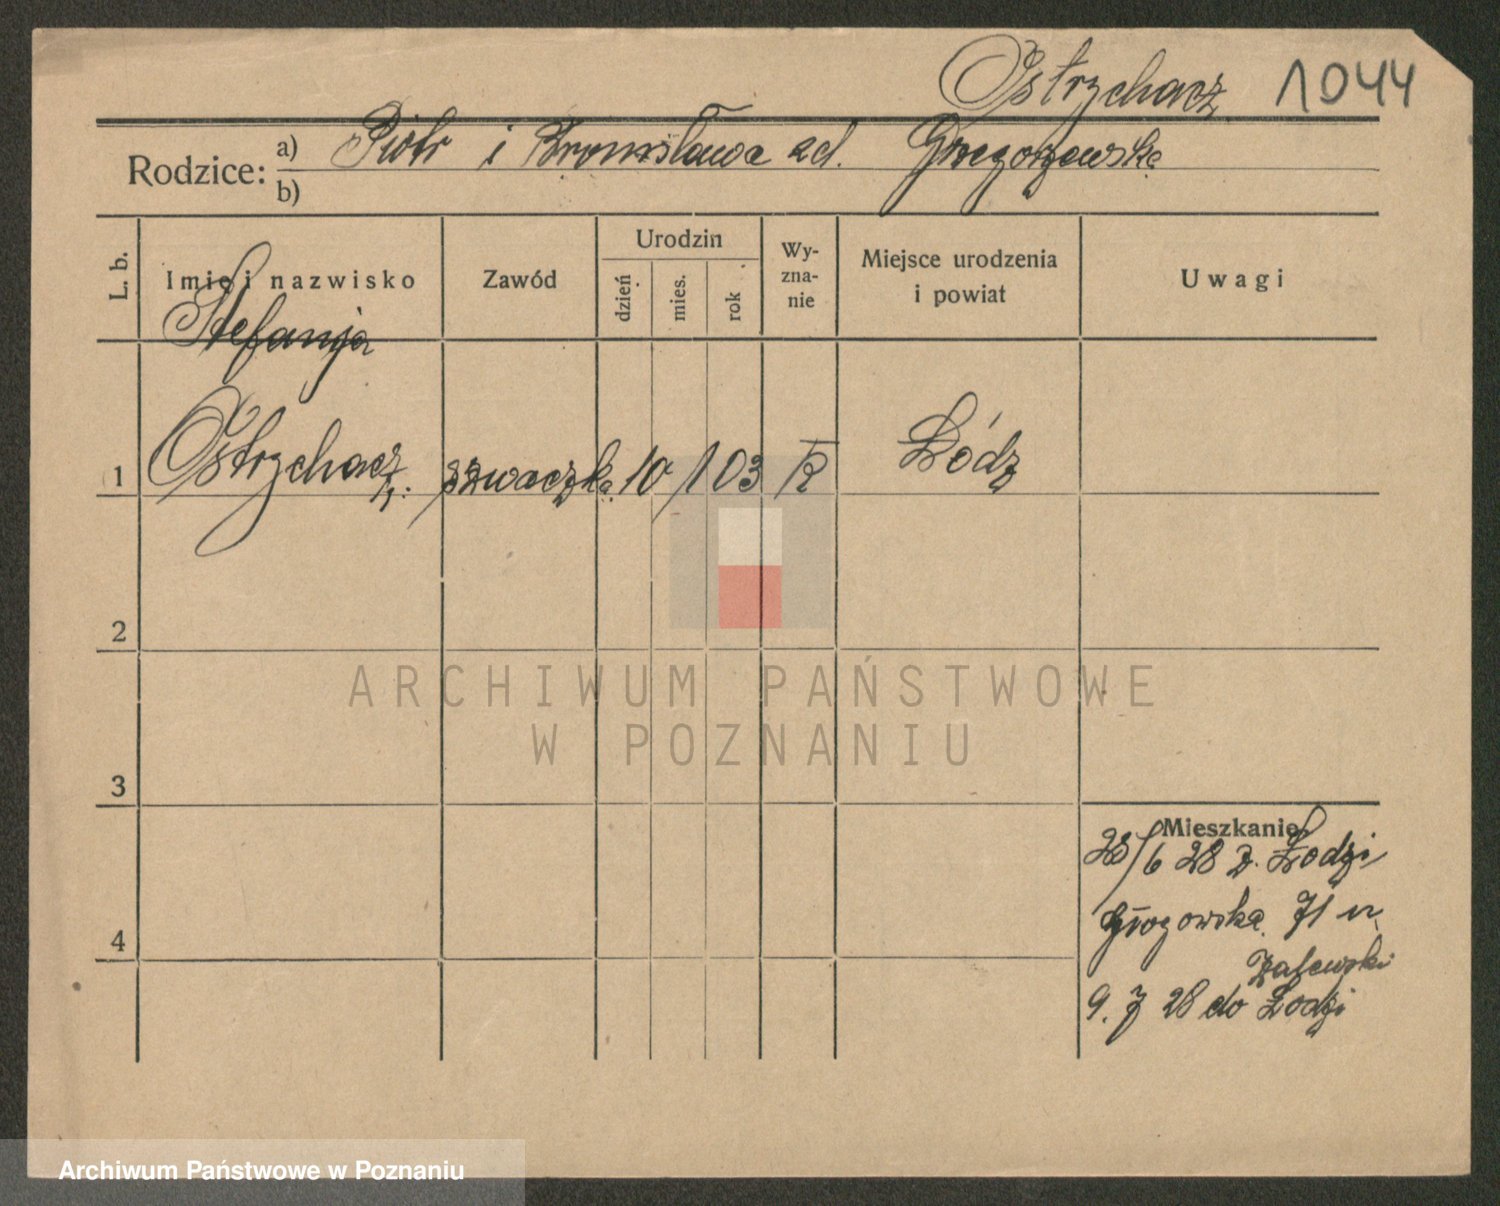 Ostrzchacz 1044
Rodzice: a) Piotr i Bronisława zd. Grzegorzewska
b)
L. b. Imię i nazwisko Zawód Urodzin dzień mies. rok Wyznanie Miejsce urodzenia i powiat Uwagi
Stefanja
1 Ostrzchacz szwaczka 10/1 03 R Łódz
2
3
4
Mieszkanie
28/6 28 z Łodzi
Głogowska 71 u
Zalewski
9. 7 28 do Łodzi
ARCHIWUM PAŃSTWOWE
W POZNANIU
Archiwum Państwowe w Poznaniu